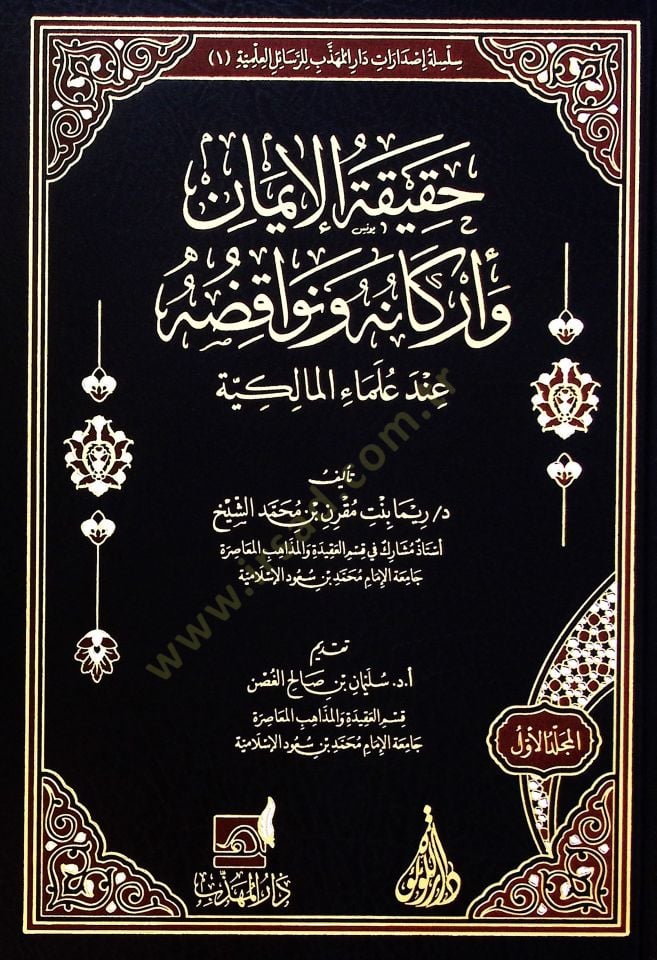 سِلْسِلَةُ إِصْدَارَاتِ دَارِ المُهَذَّبِ لِلرَّسَائِلِ العِلْمِيَّةِ (١)
حَقِيقَةُ الإِيمَانِ
وَأَرْكَانُهُ وَنَوَاقِضُهُ
عِنْدَ عُلَمَاءِ المَالِكِيَّة
تأليف
د/ رِيمَا بِنْت مُقْرِن بْن مُحَمَّد الشَّيْخ
أستاذ مشارك في قسم العقيدة والمذاهب المعاصرة
جامعة الإمام محمد بن سعود الإسلامية
تقديم
أ.د. سليمان بن صالح الغصن
قسم العقيدة والمذاهب المعاصرة
جامعة الإمام محمد بن سعود الإسلامية
المجلد الأول
دار اللؤلؤة
دار المهذب
www.irsad.com.tr